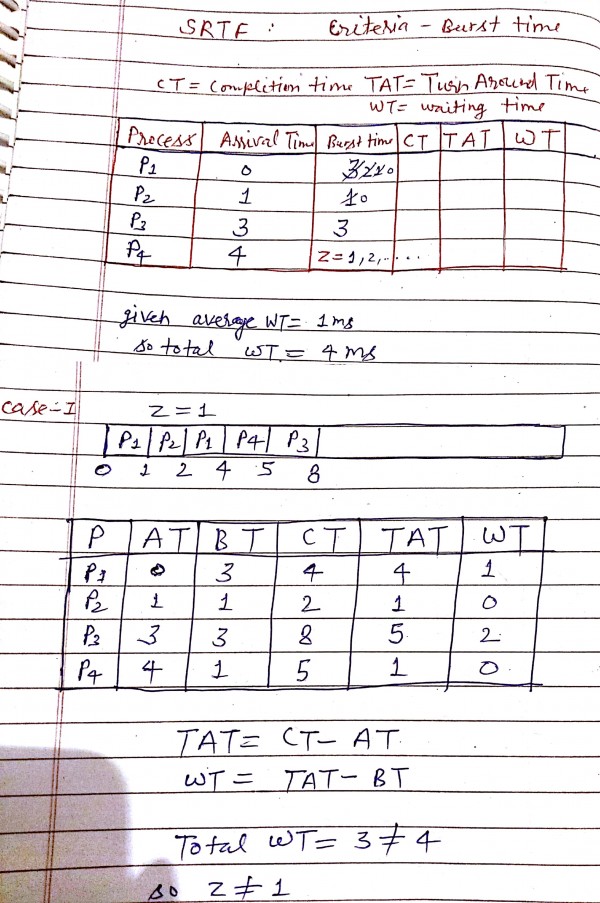 SRTF : Criteria - Burst time
CT = Completion time TAT = Turn Around Time
WT = waiting time
Process Arrival Time Burst time CT TAT WT
P1 0 3 2 1 0
P2 1 1 0
P3 3 3
P4 4 Z = 1, 2, ....
given average WT = 1 ms
so total WT = 4 ms
Case-I Z = 1
P1 P2 P1 P4 P3
0 1 2 4 5 8
P AT BT CT TAT WT
P1 0 3 4 4 1
P2 1 1 2 1 0
P3 3 3 8 5 2
P4 4 1 5 1 0
TAT = CT - AT
WT = TAT - BT
Total WT = 3 ≠ 4
so Z ≠ 1